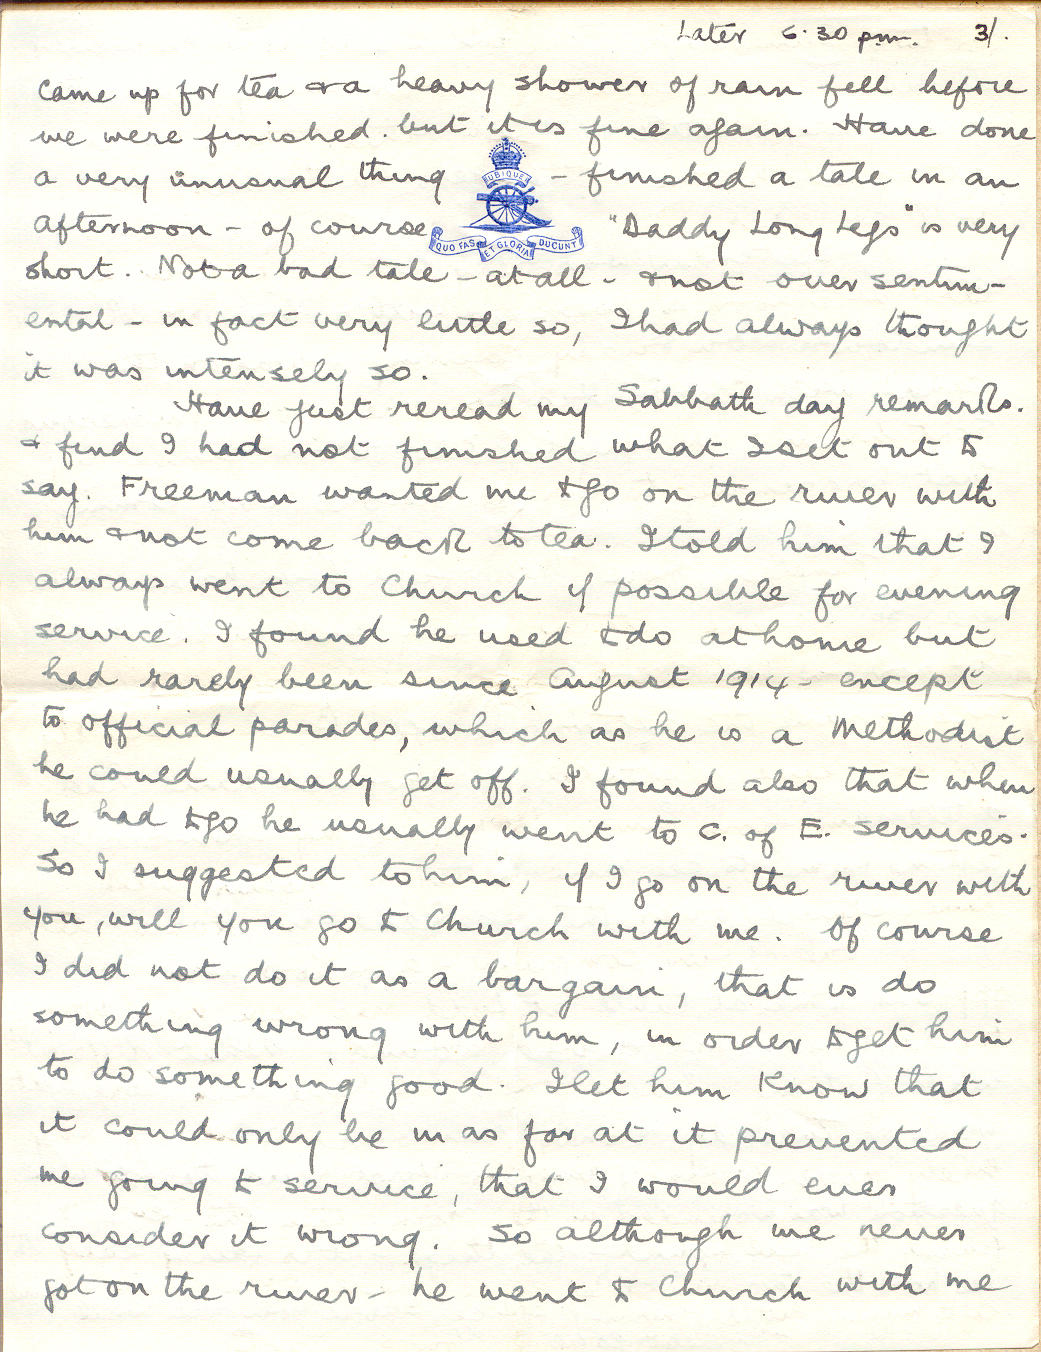 Later 6.30 p.m. 3/.
came up for tea & a heavy shower of rain fell before
we were finished. but it is fine again. Have done
a very unusual thing - finished a tale in an
UBIQUE
afternoon - of course "Daddy Long Legs" is very
QUO FAS ET GLORIA DUCUNT
short. Not a bad tale - at all - & not over sentim-
ental - in fact very little so, I had always thought
it was intensely so.
Have just reread my Sabbath day remarks.
& find I had not finished what I set out to
say. Freeman wanted me to go on the river with
him & not come back to tea. I told him that I
always went to Church if possible for evening
service. I found he used to do at home but
had rarely been since August 1914 - except
to official parades, which as he is a Methodist
he could usually get off. I found also that when
he had to go he usually went to C. of E. services.
So I suggested to him, if I go on the river with
you, will you go to Church with me. Of course
I did not do it as a bargain, that is do
something wrong with him, in order to get him
to do something good. I let him know that
it could only be in as far at it prevented
me going to service, that I would ever
consider it wrong. So although we never
got on the river - he went to Church with me